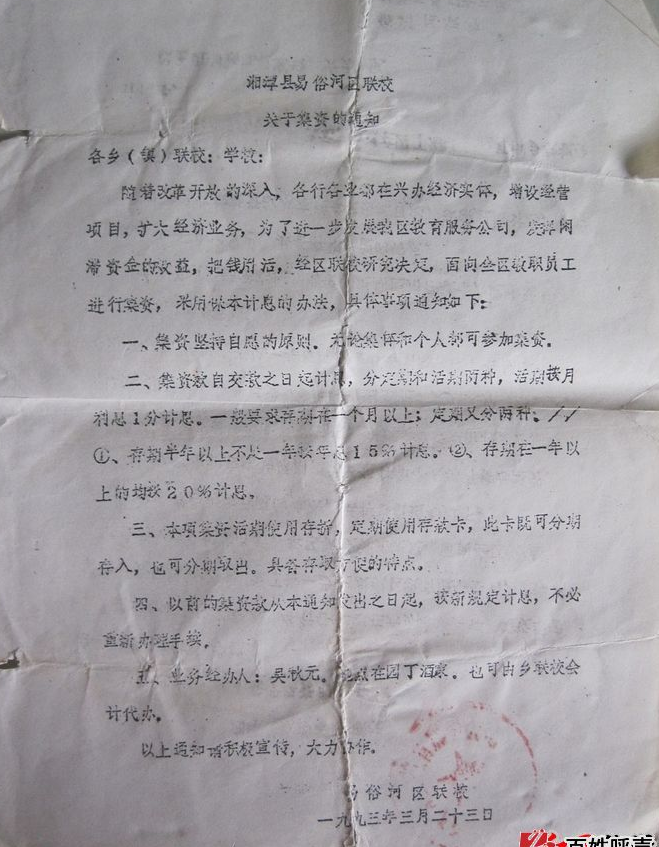 湘潭县易俗河区联校
关于集资的通知
各乡（镇）联校：学校：
随着改革开放的深入，各行各业都在兴办经济实体，增设经营
项目，扩大经济业务，为了进一步发展我区教育服务公司，发挥闲
滞资金的效益，把钱用活，经区联校研究决定，面向全区教职员工
进行集资，采用保本计息的办法，具体事项通知如下：
一、集资坚持自愿的原则。无论集体和个人都可参加集资。
二、集资款自交款之日起计息，分定期和活期两种，活期按月
利息1分计息。一般要求存期在一个月以上；定期又分两种：//
①、存期半年以上不足一年按年息15%计息。②、存期在一年以
上的均按20%计息。
三、本项集资活期使用存折，定期使用存款卡，此卡既可分期
存入，也可分期取出。具备存取方便的特点。
四、以前的集资款从本通知发出之日起，按新规定计息，不必
重新办理手续。
五、业务经办人：吴秋元。地点在园丁酒家。也可由乡联校会
计代办。
以上通知请积极宣传，大力协作。
易俗河区联校
一九九三年三月二十三日
百姓呼声